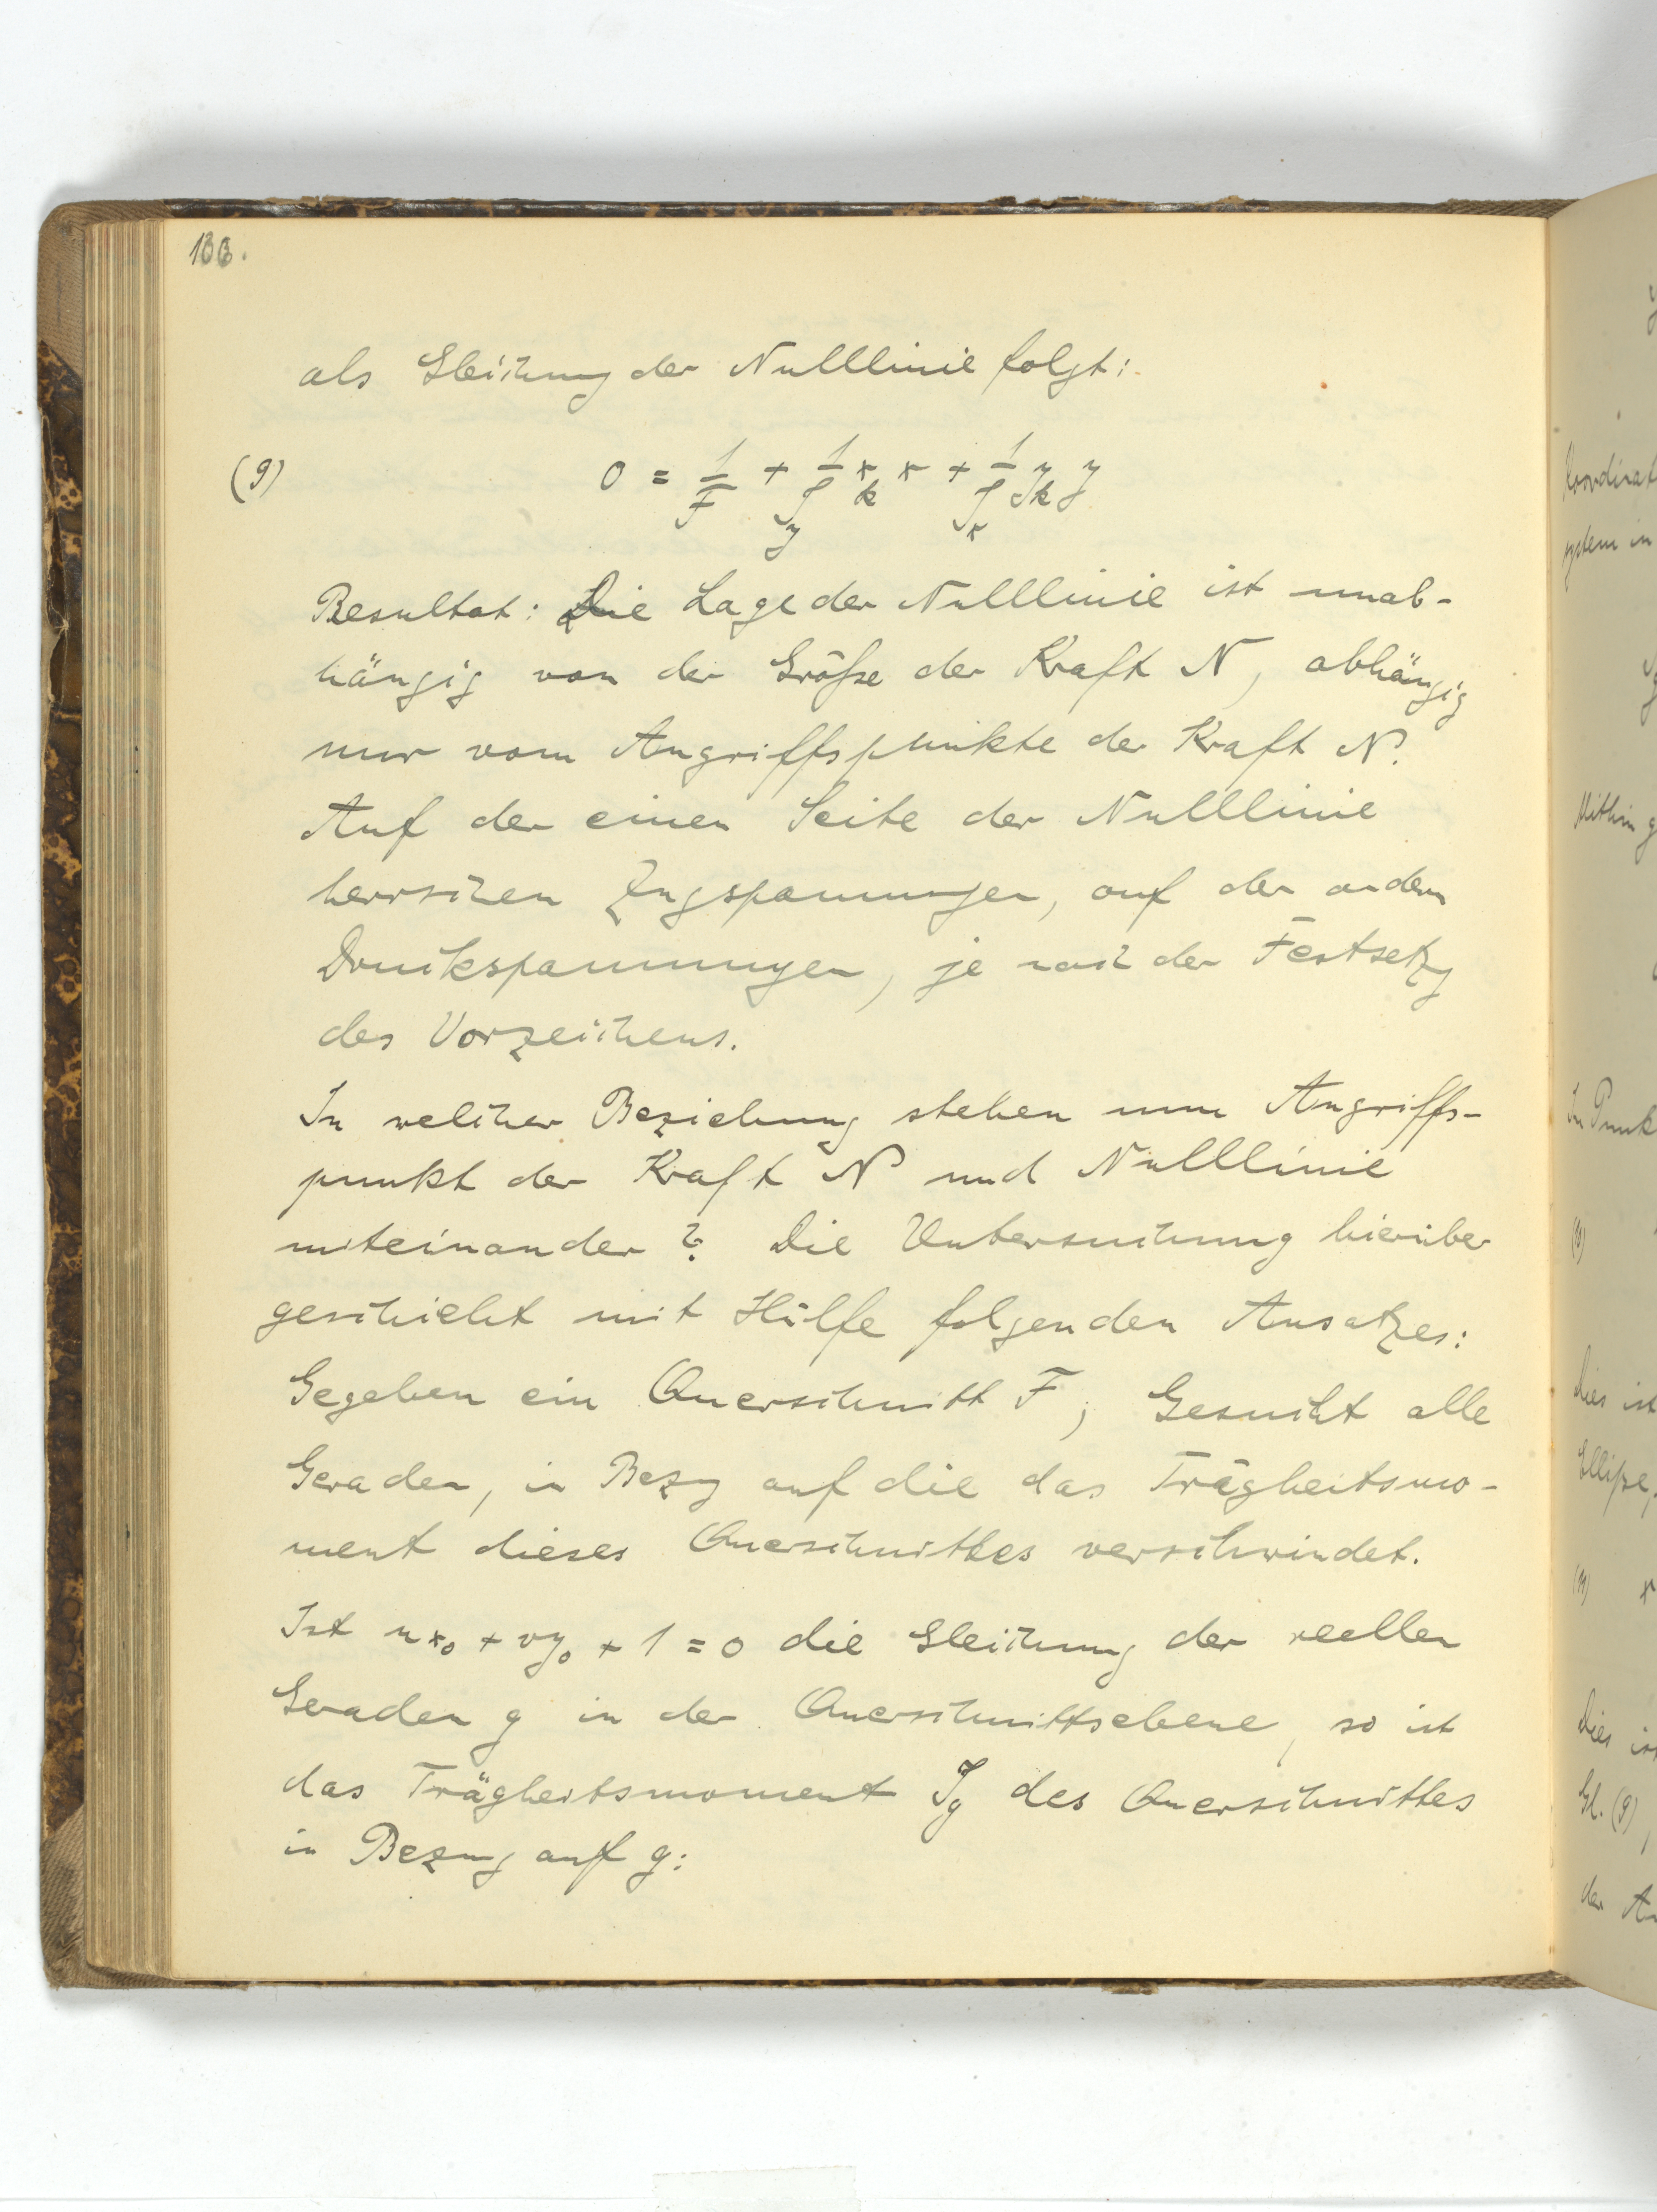 als Gleichung der Nulllinie folgt:
(9) 0 = 1/F + 1/J_y x_k x + 1/J_x y_k y
Resultat: Die Lage der Nulllinie ist unab-
hängig von der Größe der Kraft N, abhängig
nur vom Angriffspunkte der Kraft N.
Auf der einen Seite der Nulllinie
herrschen Zugspannungen, auf der andern
Druckspannungen, je nach der Festsetzg
des Vorzeichens.
In welcher Beziehung stehen nun Angriffs-
punkt der Kraft N und Nulllinie
miteinander? Die Untersuchung hierüber
geschieht mit Hülfe folgenden Ansatzes:
Gegeben ein Querschnitt F; Gesucht alle
Geraden, in Bezg auf die das Trägheitsmo-
ment dieses Querschnittes verschwindet.
Ist ux₀ + vy₀ + 1 = 0 die Gleichung der reellen
Geraden g in der Querschnittsebene, so ist
das Trägheitsmoment J_g des Querschnittes
in Bezug auf g:
Koordinat
system in
Mithin g
Im Punk
dies ist
Ellipse,
Dies ist
Gl. (9),
der An